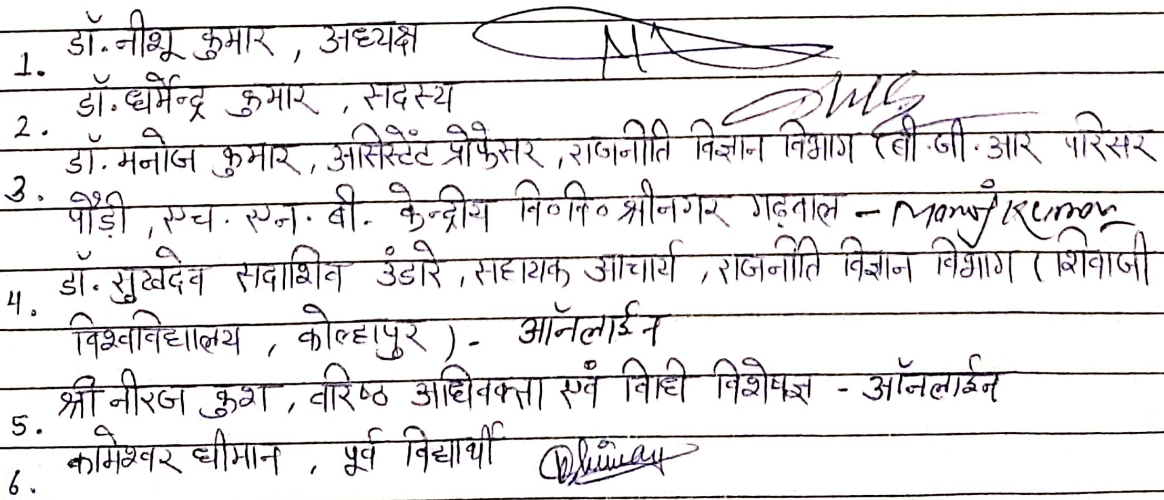 1. डॉ. नीशू कुमार, अध्यक्ष
2. डॉ. धर्मेन्द्र कुमार, सदस्य
3. डॉ. मनोज कुमार, असिस्टेंट प्रोफेसर, राजनीति विज्ञान विभाग (बी.जी.आर परिसर
पौड़ी, एच. एन. बी. केन्द्रीय वि०वि० श्रीनगर गढ़वाल - Manoj Kumar
4. डॉ. सुखदेव सदाशिव उंडारे, सहायक आचार्य, राजनीति विज्ञान विभाग (शिवाजी
विश्वविद्यालय, कोल्हापुर) - ऑनलाईन
5. श्री नीरज कुश, वरिष्ठ अधिवक्ता एवं विधि विशेषज्ञ - ऑनलाईन
6. कामेश्वर धीमान, पूर्व विद्यार्थी Dhiman